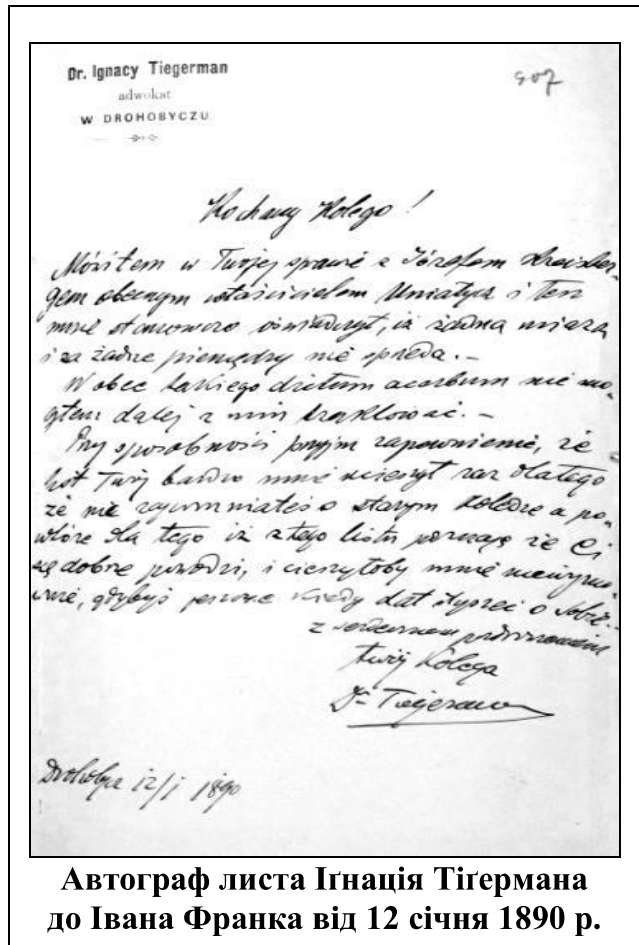 Dr. Ignacy Tiegerman
adwokat
W DROHOBYCZU
907
Kochany Kolego!
Mówiłem w Twojej sprawie z Józefem Kreisber-
giem obecnym właścicielem Uniatycz i ten
mnie stanowczo oświadczył, iż żadną miarą
i za żadne pieniędzy nie sprzeda. –
Wobec takiego dictum acerbum nie mo-
głem dalej z nim traktować. –
Przy sposobności przyjm zapewnienie, że
list Twój bardzo mnie ucieszył raz dlatego
że nie zapomniałeś o starym Koledze a po-
wtóre dla tego iż z tego listu poznaję że Ci
się dobrze powodzi, i cieszyłoby mnie niewymo-
wnie, gdybyś jeszcze kiedy dał słyszeć o sobie. –
z serdecznem pozdrowieniem
twój Kolega
Dr Tiegerman
Drohobycz 12/I 1890
Автограф листа Іґнація Тіґермана
до Івана Франка від 12 січня 1890 р.